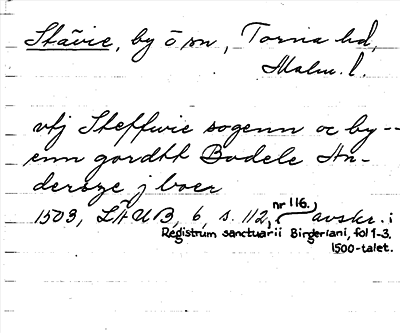 Stävie, by o sn, Torna hd,
Malm. l.
vtj Steffwie sogenn oc by--
enn gordtt Bodele An-
dersze j boer
nr 116.
1503, LÄUB, 6, s. 112, avskr. i
Registrum sanctuarii Birgeriani, fol 1-3.
1500-talet.